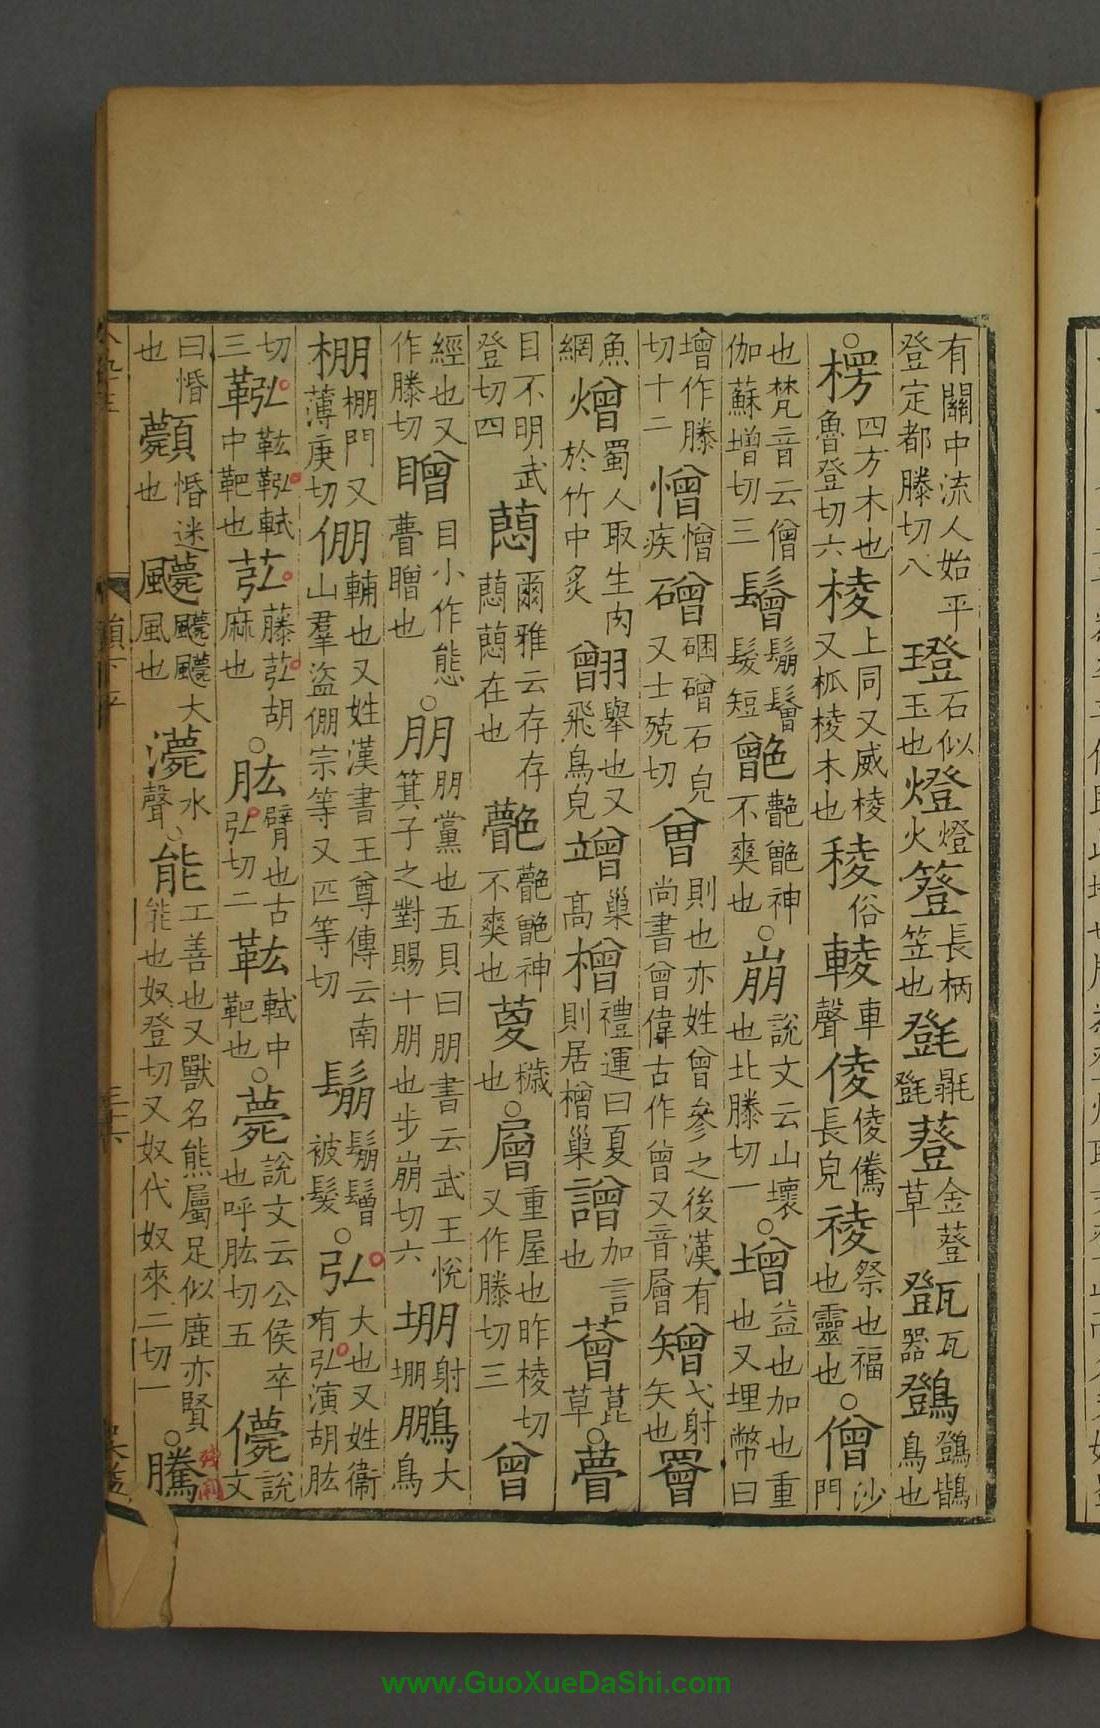 有關中流人始平登定都滕切八璒石似玉也燈燈火簦長柄笠也㲪毾㲪䔲金䔲草㽅瓦器䳾䳾鵲鳥也
○楞四方木也魯登切六棱上同又威棱又柧棱木也稜俗䡿車聲倰倰儯長皃祾祭也福也靈也○僧沙門
也梵音云僧伽蘇增切三鬙鬅鬙髮短䒏䒐䒏神不爽也○崩說文云山壞也北滕切一○增益也加也重也又埋幣曰
增作滕切十二憎憎疾磳硱磳石皃又士殑切曾則也亦姓曾參之後漢有尚書曾偉古作曾又音層矰弋射矢也罾
魚網熷蜀人取生肉於竹中炙䎖舉也又飛鳥皃竲巢高橧禮運曰夏則居橧巢譄加言也䉕草○瞢
目不明武登切四懜爾雅云存存懜懜在也䒐䒐䒏神不爽也蕿穢也○層重屋也昨棱切又作滕切三曾
經也又作滕切䁬目小作態瞢䁬也○朋朋黨也五貝曰朋書云武王悅箕子之對賜十朋也步崩切六堋射堋鵬大鳥
棚棚門又薄庚切倗輔也又姓漢書王尊傳云南山羣盜倗宗等又匹等切鬅鬅鬙被髮○弘大也又姓衛有弘演胡肱
切三鞃鞃軾中靶也苰藤苰胡麻也○肱臂也古弘切二䡌軾中靶也○薨說文云公侯卒也呼肱切五儚說文
曰惛也顭惛迷也䬝䬝䬝大風也㵗水聲○能工善也又獸名熊屬足似鹿亦賢能也奴登切又奴代奴來二切一○騰
www.GuoXueDaShi.com